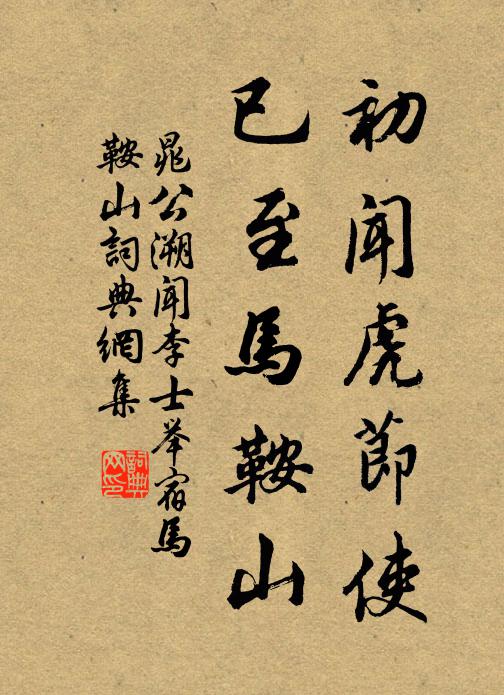 初闻虎節使
已至馬鞍山
晁公溯闻李士举宿馬
鞍山詞典網集
詞典
网印